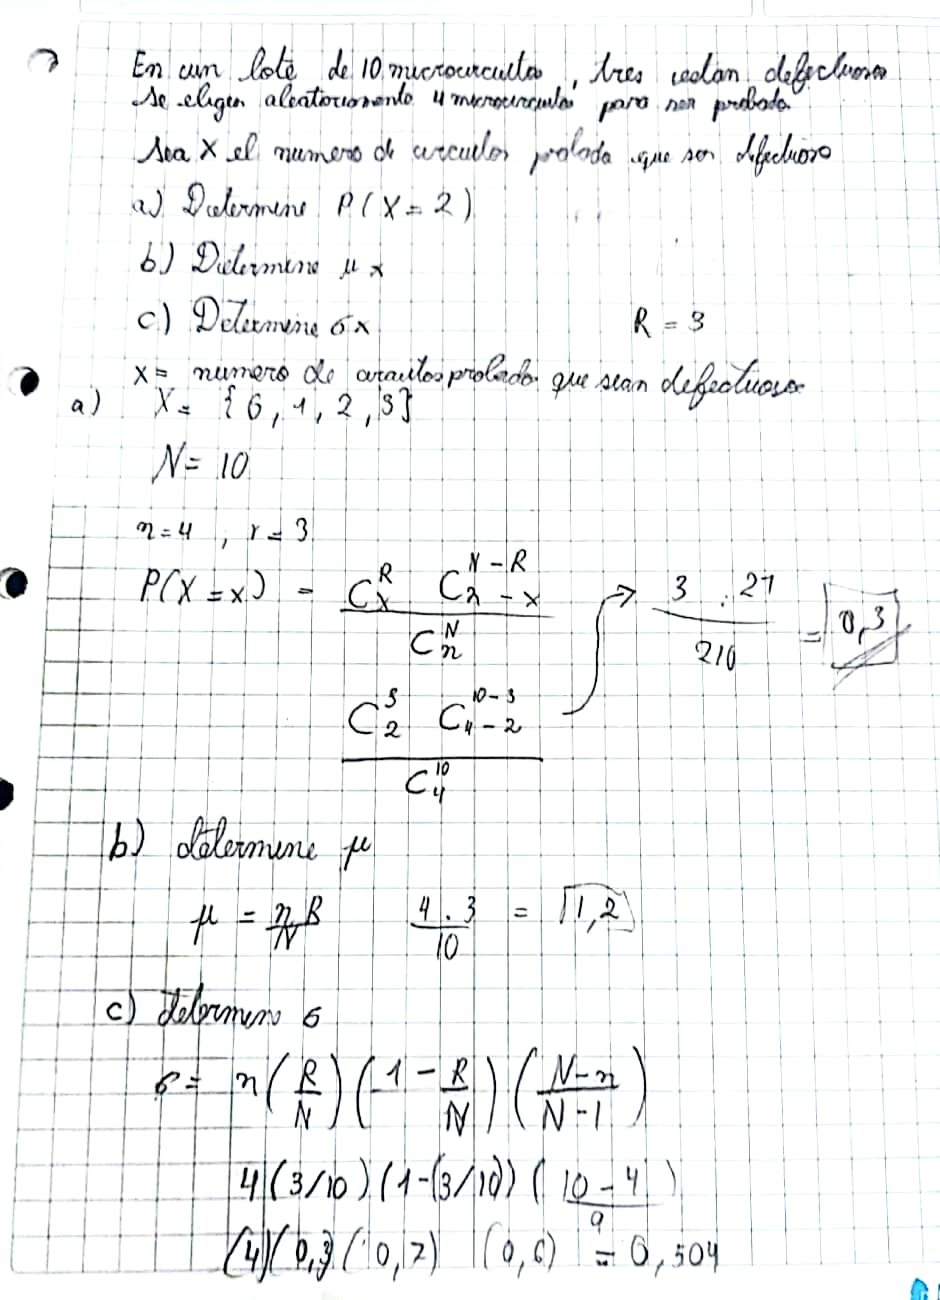 En un lote de 10 microcircuitos, tres estan defectuosos
se eligen aleatoriamente 4 microcircuitos para ser probados
Sea X el numero de circuitos probados que son defectuoso
a) Determine P(X = 2)
b) Determine μ x
c) Determine σx R = 3
x = numero de circuitos probados que sean defectuosos
a) X = {0, 1, 2, 3}
N = 10
n = 4 , r = 3
P(X = x) = C^R_x C^{N-R}_{n-x} / C^N_n → 3 . 21 / 210 = 0,3
C^3_2 C^{10-3}_{4-2} / C^{10}_4
b) determine μ
μ = nR/N 4 . 3 / 10 = 1,2
c) determine σ
σ = n (R/N) (1 - R/N) (N-n / N-1)
4 (3/10) (1-(3/10)) (10-4 / 9)
(4) (0,3) (0,7) (0,6) = 0,504